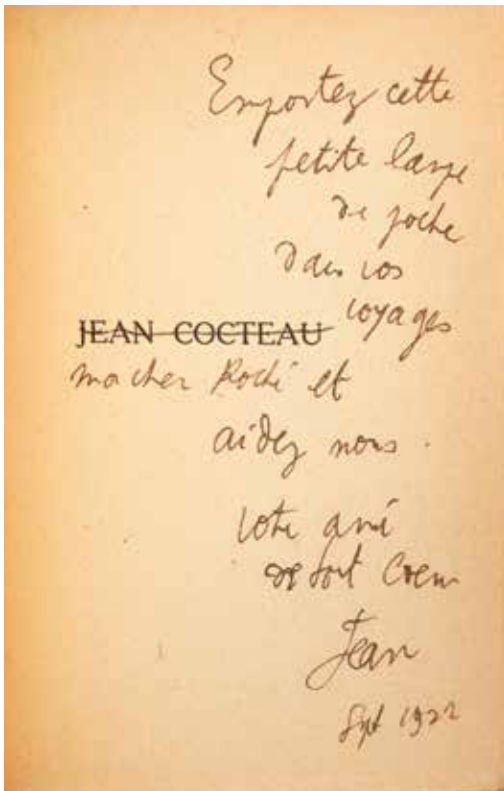 Emportez cette
petite lampe
de poche
dans vos
voyages
JEAN COCTEAU
mon cher Roché et
aidez nous.
votre ami
de tout coeur
Jean
Sept 1922